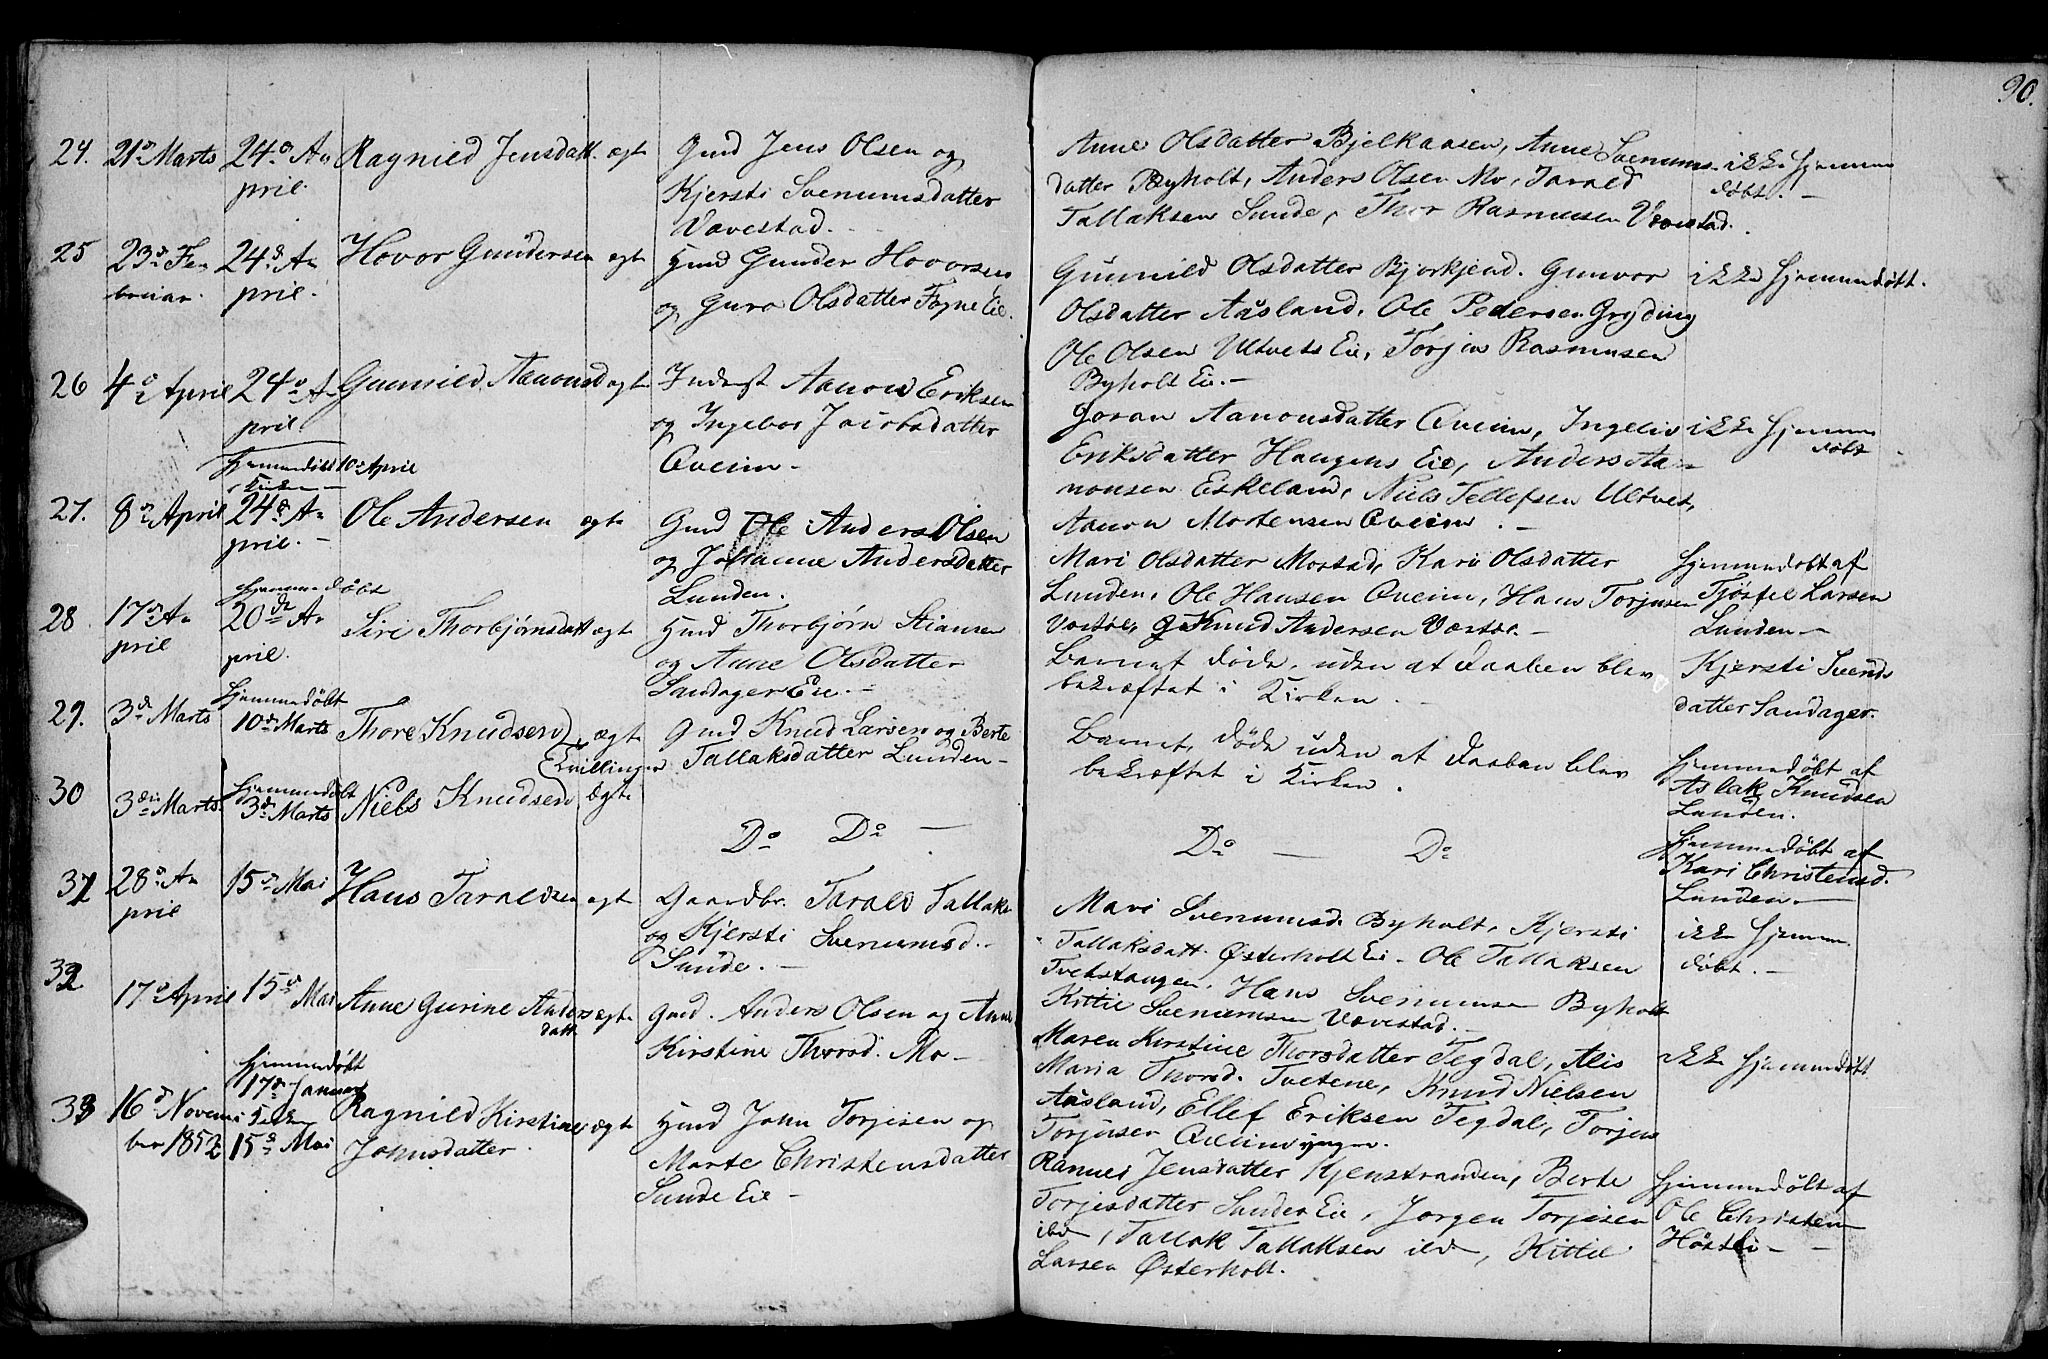 90.
24. 21de Marts 24de A-
pril. Ragnild Jensdatt. ægte Gmd Jens Olsen og
Kjersti Svenumsdatter
Vævestad.
Anne Olsdatter Bjelkaasen, Anne Svenums-
datter Byholt, Anders Olsen Mo, Tarald
Tallaksen Sunde, Thor Rasmusen Vævestad.
ikke hjemme
døbt.
25 23de Fe-
bruar. 24de A-
pril. Hovor Gundersen ægte Hmd Gunder Hovorsen
og Guro Olsdatter Fogne Eie.
Gunnild Olsdatter Bjorkjend. Gunvor
Olsdatter Aasland, Ole Pedersen Gryding
Ole Olsen Ultvets Eie, Torjus Rasmusen
Byholt Eie.
ikke hjemmedøbt.
26 4de April 24de A-
pril. Gunnild Aanonsd ægte Inderst Aanon Eriksen
og Ingebor Jacobsdatter
Qveim
Goran Aanonsdatter Qveim, Ingeliv
Eriksdatter Haugens Eie, Anders Aa-
nonsen Eskeland, Niels Tellefsen Ultvet,
Aanon Mortensen Qveim.
ikke hjemme
døbt
27. 8de April hjemmedøbt 10de April
24de A-
pril. Ole Andersen ægte Gmd Ole Anders Olsen
og Johanne Andersdatter
Lunden.
Mari Olsdatter Mostad, Kari Olsdatter
Lunden, Ole Hansen Qveim, Hans Torjusen
Vastøl, og Knud Andersen Vastøl.
hjemmedøbt af
Tjøstel Larsen
Lunden
28 17de A-
pril hjemmedøbt
20de A-
pril. Siri Thorbjørnsdatt ægte Hmd Thorbjørn Stiansen
og Anne Olsdatter
Sandager Eie.
Barnet døde, uden at Daaben blev
bekræftet i Kirken.
Kjersti Svends
datter Sandager.
29. 3de Marts hjemmedøbt
10de Marts Thore Knudsen ægte Gmd Knud Larsen og Berte
Tvillinger Tallaksdatter Lunden
Barnet, døde uden at Daaben blev
bekræftet i Kirken.
hjemmedøbt af
Aslak Knudsen
Lunden.
30 3die Marts hjemmedøbt
3de Marts Niels Knudsen ægte
Do Do
Do Do
hjemmedøbt af
Kari Christensd.
Lunden.
31 28de A-
pril 15de Mai Hans Taraldsen ægte Gaardbr. Tarald Tallaks
og Kjersti Svenumsd.
Sunde.
Mari Svenumsd. Byholt, Kjersti
Tallaksdatt. Østerholt Ei. Ole Tallaksen
Tvedstangen, Hans Svenumsen Byholt
Kittil Svenumsen Vævestad.
ikke hjemme
døbt.
32 17de April 15de Mai Anne Gurine Anders
datt ægte Gmd. Anders Olsen og Anne
Kirstine Thorsd. Mo
Maren Kirstine Thorsdatter Tegdal, Alis
Maria Thorsd. Tvetene, Knud Nielsen
Aasland, Ellef Eriksen Tegdal, Torjus
Torjusen Qveim yngre.
ikke hjemmedøbt
33 16de Novem-
ber 1852 hjemmedøbt
17de Januar
15de Mai Ragnild Kirstine
Johnsdatter. ægte Hmd John Torjusen og
Marte Christensdatter
Sunde Eie
Jensdatter Kjenstranden, Berte
Torjesdatter Sunde Eie, Jørgen Torjesen
ibd, Tallak Tallaksen ibd, Kittil
Larsen Østerholt.
hjemmedøbt af
Ole Christen